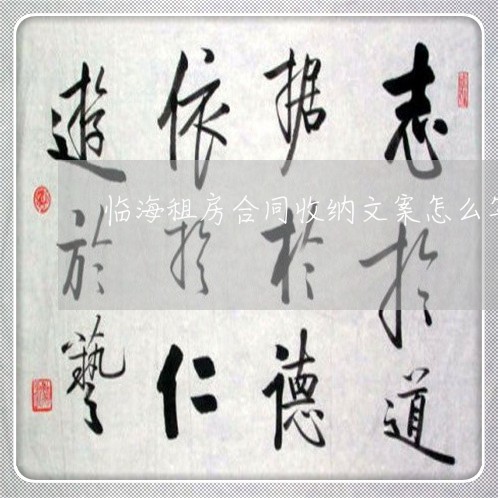 志於道
据於德
依於仁
遊於藝
临海租房合同收纳文案怎么